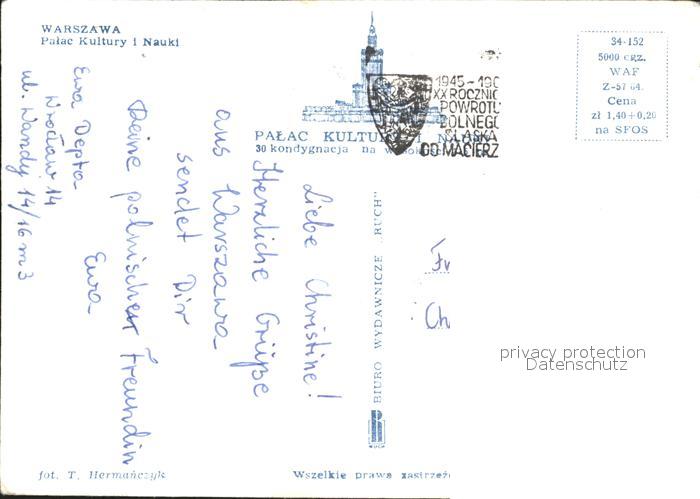 WARSZAWA
Pałac Kultury i Nauki
34-152
5000 egz.
WAF
Z-57 64.
Cena
zł 1,40+0,20
na SFOS
1945-19
XX ROCZNIC
POWROTU
DOLNEGO
ŚLĄSKA
DO MACIERZ
PAŁAC KULTURY I
30 kondygnacja na
Liebe Christine!
Herzliche Grüße
aus Warszawa
sendet Dir
Deine polnischen Freundin
Ewa
Ewa Depta
Wrocław 14
ul. Wandy 14/16 m 3
BIURO WYDAWNICZE „RUCH"
Fr
Ch
privacy protection
Datenschutz
fot. T. Hermańczyk
Wszelkie prawa zastrzeż